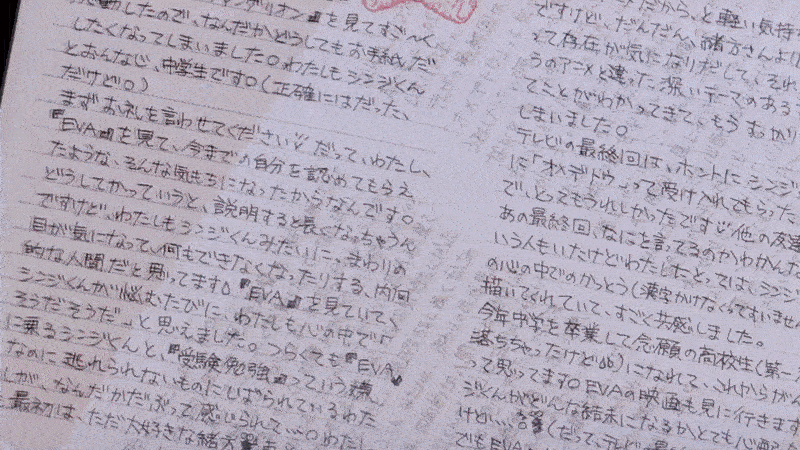 動したので、なんだかどうしてもお手紙だ
したくなってしまいました。わたしもシンジくん
とおんなじ、中学生です。(正確にはだった、
だけど。)
まずお礼を言わせてください♡だって、わたし、
『EVA』を見て、今までの自分を認めてもらえ
たような、そんな気もちになったからなんです。
どうしてかっていうと、説明すると長くなっちゃうん
ですけど、わたしもシンジくんみたいに、まわりの
目が気になって、何もできなくなったりする、内向
的な人間だと思ってます。『EVA』を見ていて、
シンジくんが悩むたびに、わたしも心の中で「
そうだそうだ」と思えました。つらくても『EVA』
に乗るシンジくんと、『受験勉強』っていう嫌
なのに逃れられないものにしばられているわた
しが、なんだかだぶって感じられて…。わたし
最初は、ただ大好きな緒方
だから、と軽い気持
ですけど、だんだん、緒方さんより
って存在が気になりだして、それ
うのアニメと違った深いテーマのある
てことがわかってきて、もう
しまいました。
テレビの最終回は、ホントにシンジ
に「オメデトウ」って受け入れてもらった
で、とってもうれしかったです♡他の友達
あの最終回、なにを言ってるのかわかんな
いう人もいたけどわたしにとっては、シンジ
の心の中でのかっとう(漢字かけなくってすいません
描いてくれていて、すごく共感しました。
今年中学を卒業して念願の高校生(第一
落ちちゃったけど)になれて、これからがん
って思ってます。EVAの映画も見に行きます
ジくんがどんな結末になるか、とても心配
けど…(だって、テレビの最
でもEVA